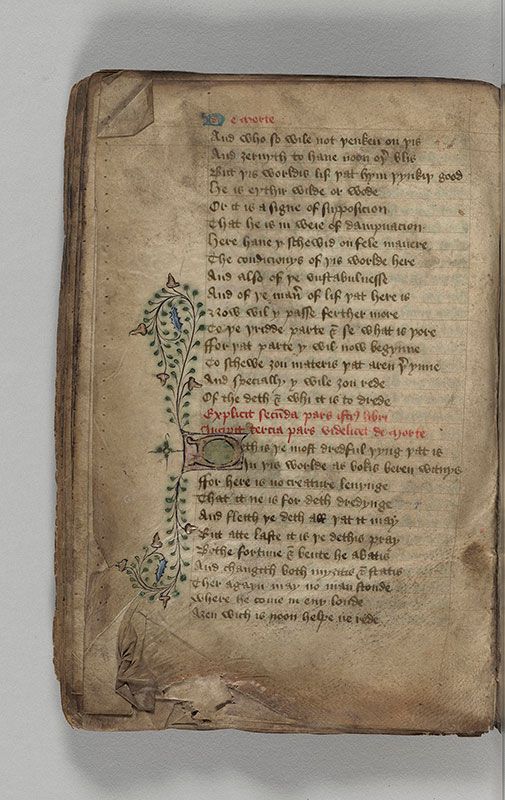 De morte
And who so wile not yenken on yis
And ȝernyth to haue noon oyr blis
But yis worldis lif yat hym yynkiy good
He is eythir wilde or wode
Or it is a signe of supposicion
That he is in weie of dampnacion
Here haue y schewid on fele manere
The condicionys of yis worlde here
And also of ye vnstabulnesse
And of ye maner of lif yat here is
Now wil y passe ferther more
To ye yridde parte & se what is yore
Ffor yat parte y wil now begynne
To schewe ȝou materis yat aren yer ynne
And specially y wile ȝou rede
Of the deth & whi it is to drede
Explicit secunda pars istius libri
Incipit tercia pars videlicet de morte
Deth is ye most dredful yyng yat is
In yis worlde as bokis beren witnys
Ffor here is no creature leuynge
That it ne is for deth dredynge
And fleith ye deth all yat it may
But atte laste it is ye dethis pray
Bothe fortune & beute he abatis
And changith both myȝtis & statis
Ther agayn may no man stonde
Where he come in eny londe
Aȝen wich is noon helpe ne rede